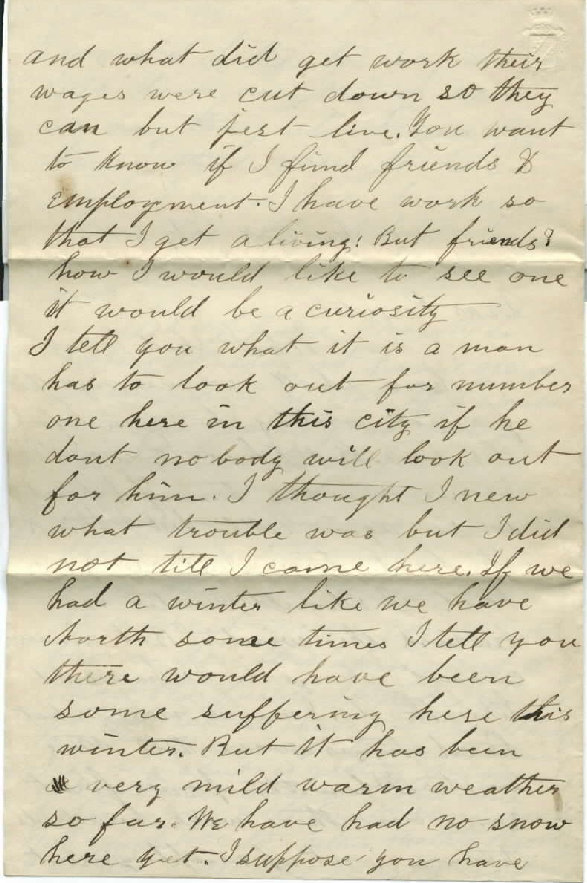 and what did get work their
wages were cut down so they
can but jest live. You want
to know if I find friends &
employment. I have work so
that I get a living: But friends?
how I would like to see one
it would be a curiosity
I tell you what it is a man
has to look out for number
one here in this city if he
dont nobody will look out
for him. I thought I new
what trouble was but I did
not till I came here. If we
had a winter like we have
North some times I tell you
there would have been
some suffering here this
winter. But it has been
very mild warm weather
so far. We have had no snow
here yet. I suppose you have